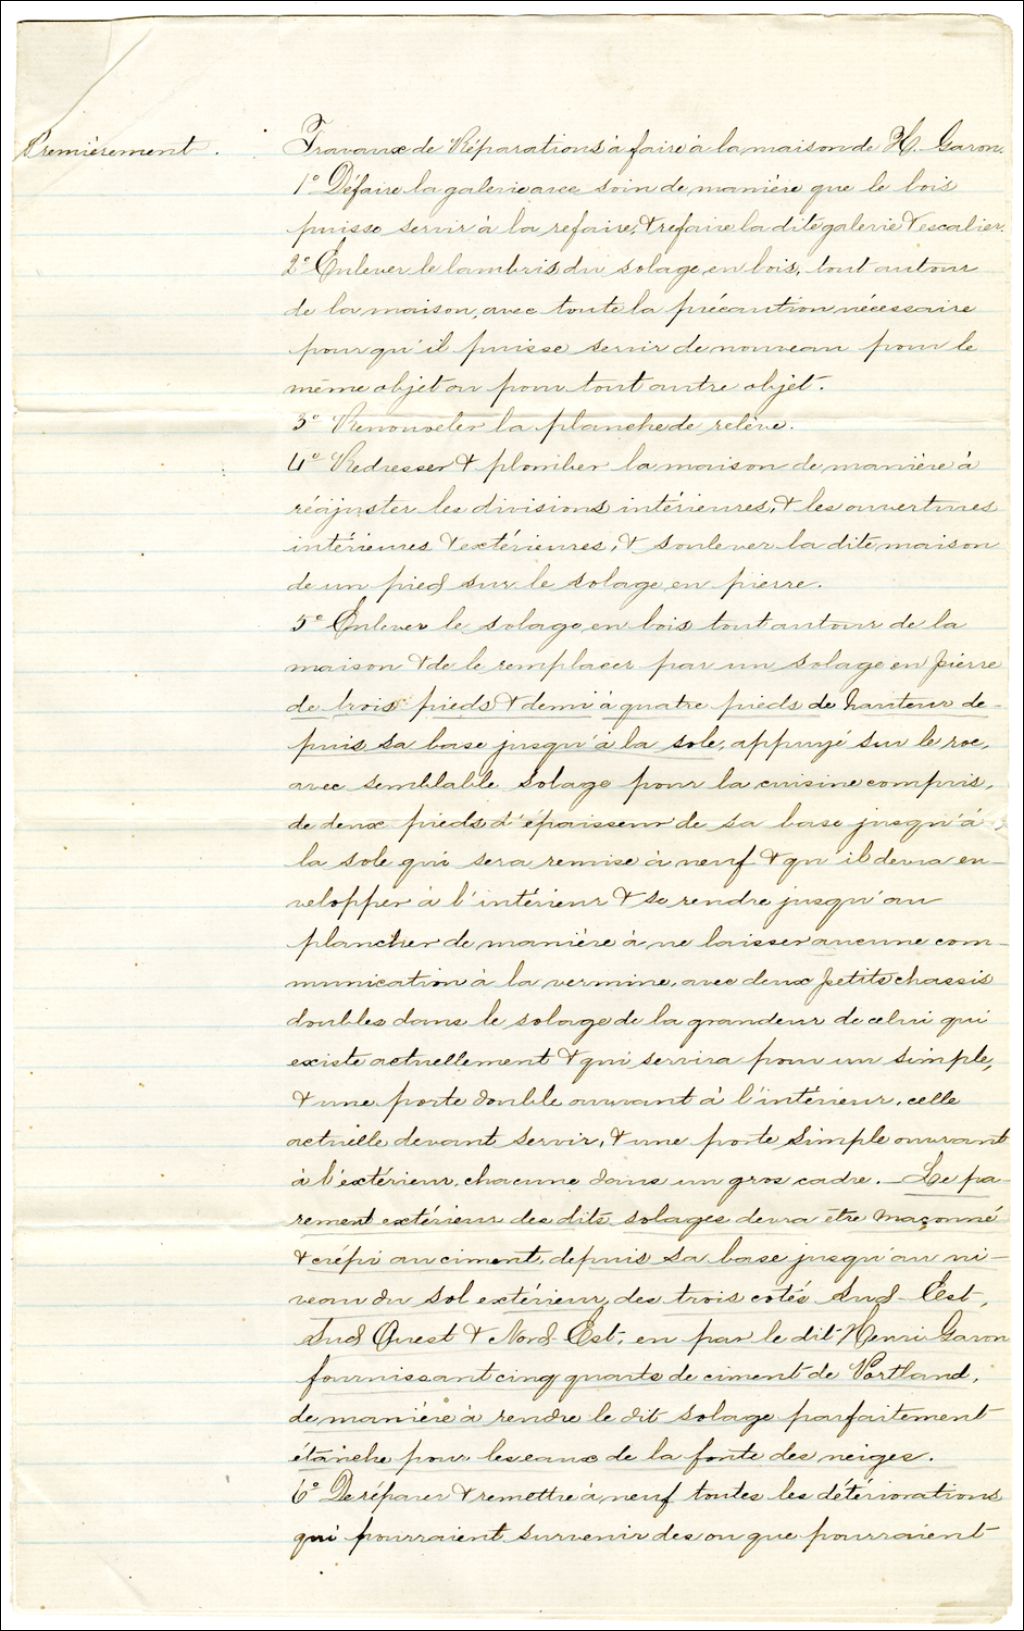 Premièrement.
Travaux de Réparations à faire à la maison de H. Garon.
1° Défaire la galerie avec soin de manière que le bois
puisse servir à la refaire, & refaire la dite galerie & escalier.
2° Enlever le lambris du solage en bois, tout autour
de la maison, avec toute la précaution nécessaire
pour qu'il puisse servir de nouveau pour le
même objet ou pour tout autre objet.
3° Renouveler la planche de relève.
4° Redresser & plomber la maison de manière à
réajuster les divisions intérieures, & les ouvertures
intérieures & extérieures, & soulever la dite maison
de un pied sur le solage en pierre.
5° Enlever le solage en bois tout autour de la
maison & de le remplacer par un solage en pierre
de trois pieds & demi à quatre pieds de hauteur de-
puis sa base jusqu'à la sole, appuyé sur le roc,
avec semblable solage pour la cuisine compris,
de deux pieds d'épaisseur de sa base jusqu'à
la sole qui sera remise à neuf & qu'il devra en-
velopper à l'intérieur & se rendre jusqu'au
plancher de manière à ne laisser aucune com-
munication à la vermine, avec deux petits chassis
doubles dans le solage de la grandeur de celui qui
existe actuellement & qui servira pour un simple,
& une porte double ouvrant à l'intérieur, celle
actuelle devant servir, & une porte simple ouvrant
à l'extérieur, chacune dans un gros cadre. – Le pa-
rement extérieur des dits solages devra être maçonné
& crépi au ciment, depuis sa base jusqu'au ni-
veau du sol extérieur, des trois cotés Sud-Est,
Sud Ouest & Nord-Est, en par le dit Henri Garon
fournissant cinq quarts de ciment de Portland,
de manière à rendre le dit solage parfaitement
étanche pour les eaux de la fonte des neiges.
6° De réparer & remettre à neuf toutes les détériorations
qui pourraient survenir des ou que pourraient